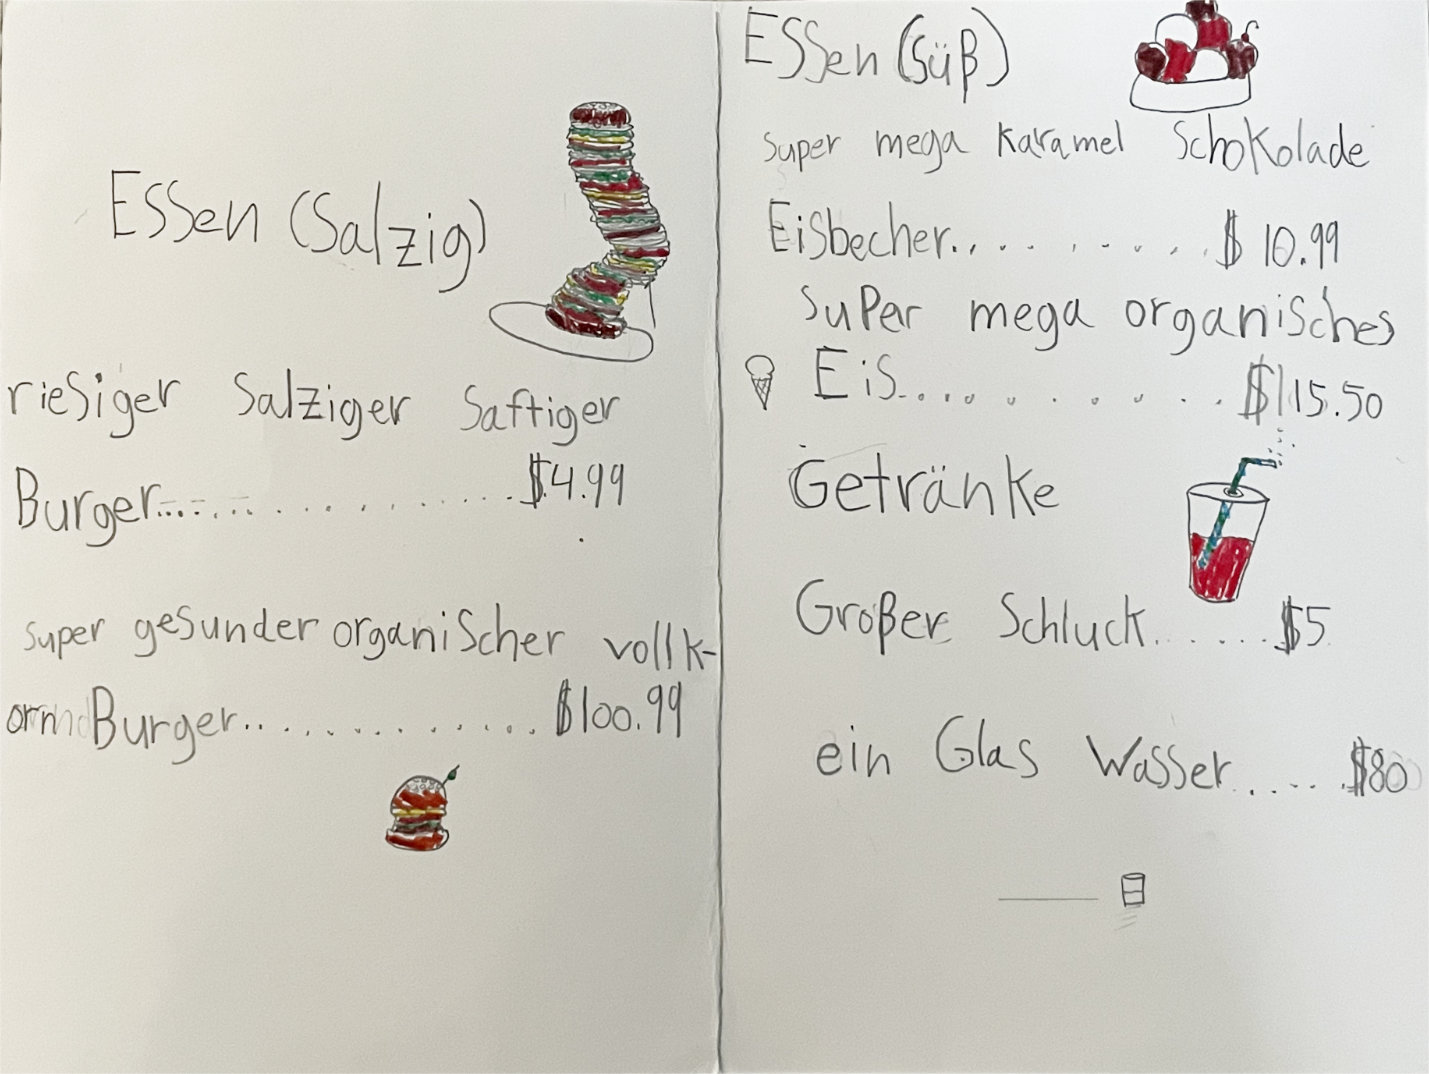 Essen (Salzig)
riesiger Salziger Saftiger
Burger.................$4.99
super gesunder organischer vollk-
orn Burger..............$100.99
Essen (süß)
super mega Karamel Schokolade
Eisbecher..........$10.99
super mega organisches
Eis.............$115.50
Getränke
Großer Schluck......$5
ein Glas Wasser......$80